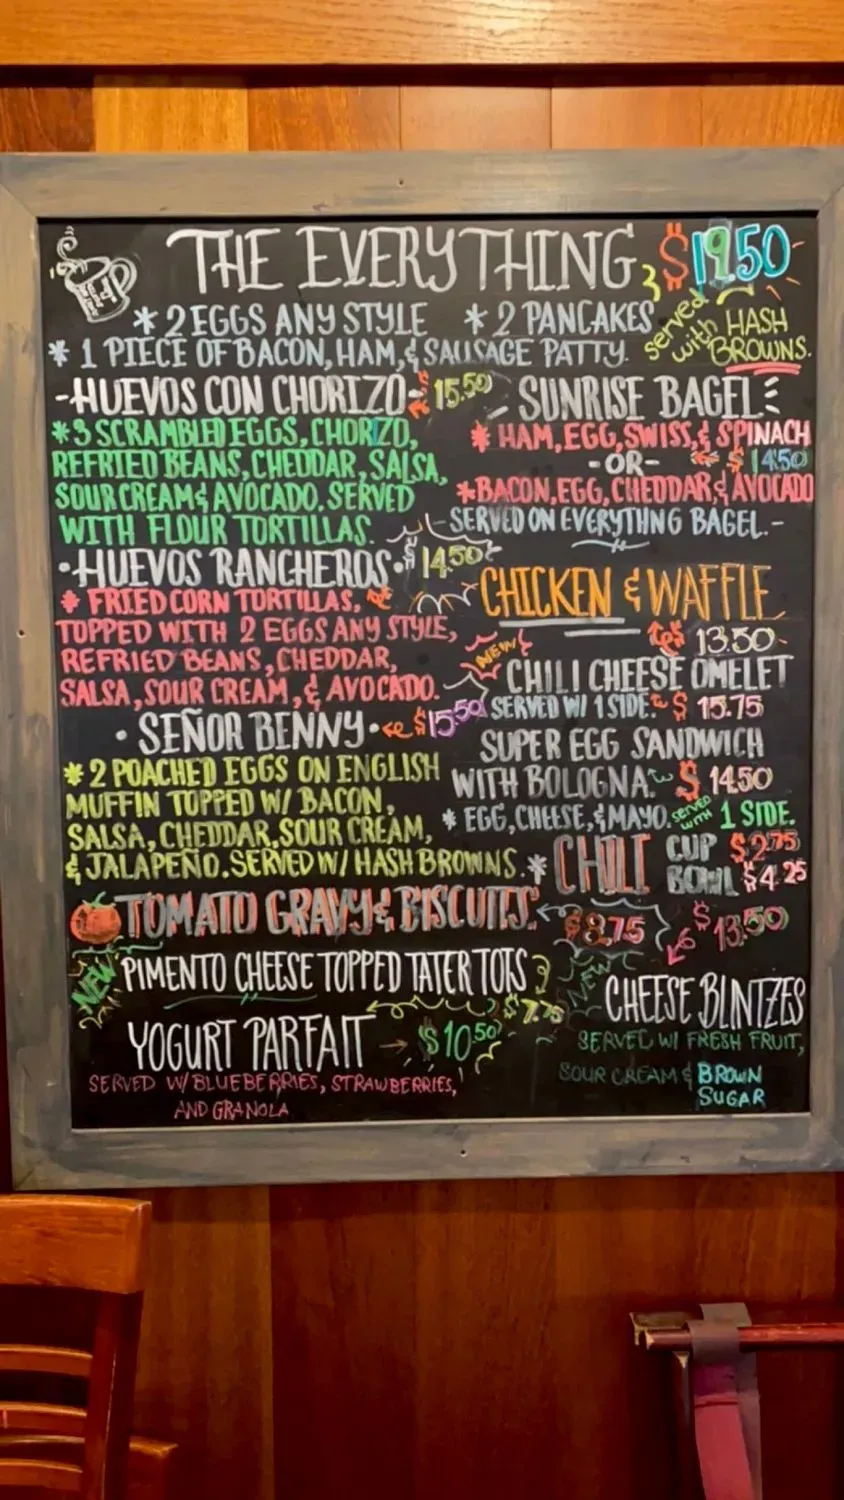 THE EVERYTHING $19.50
* 2 EGGS ANY STYLE * 2 PANCAKES
* 1 PIECE OF BACON, HAM, & SAUSAGE PATTY.
served with HASH BROWNS.
-HUEVOS CON CHORIZO- 15.50
*3 SCRAMBLED EGGS, CHORIZO,
REFRIED BEANS, CHEDDAR, SALSA,
SOUR CREAM & AVOCADO. SERVED
WITH FLOUR TORTILLAS.
•HUEVOS RANCHEROS• $14.50
* FRIED CORN TORTILLAS.
TOPPED WITH 2 EGGS ANY STYLE,
REFRIED BEANS, CHEDDAR,
SALSA, SOUR CREAM, & AVOCADO.
• SEÑOR BENNY• $15.50
* 2 POACHED EGGS ON ENGLISH
MUFFIN TOPPED W/ BACON,
SALSA, CHEDDAR, SOUR CREAM,
& JALAPEÑO. SERVED W/ HASH BROWNS.
SUNRISE BAGEL
* HAM, EGG, SWISS, & SPINACH
-OR- $14.50
*BACON, EGG, CHEDDAR, & AVOCADO
-SERVED ON EVERYTHNG BAGEL.-
CHICKEN & WAFFLE
$ 13.50
NEW
CHILI CHEESE OMELET
SERVED W/ 1 SIDE. $ 15.75
SUPER EGG SANDWICH
WITH BOLOGNA. $ 14.50
* EGG, CHEESE, & MAYO. SERVED WITH 1 SIDE.
* CHILI CUP $2.75
BOWL $4.25
TOMATO GRAVY & BISCUITS. $8.75
NEW PIMENTO CHEESE TOPPED TATER TOTS
$7.75
YOGURT PARFAIT $10.50
SERVED W/ BLUEBERRIES, STRAWBERRIES,
AND GRANOLA
$13.50
NEW
CHEESE BLINTZES
SERVED W/ FRESH FRUIT,
SOUR CREAM & BROWN
SUGAR